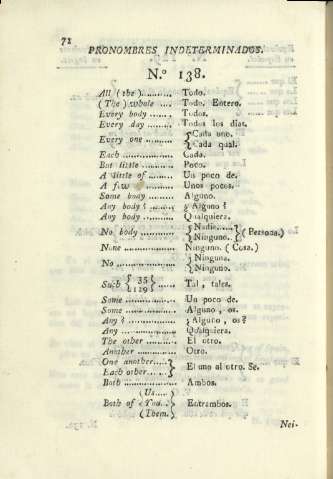 72
PRONOMBRES INDETERMINADOS.
N.º 138.
All (the).......... Todo.
(The) whole .... Todo. Entero.
Every body ....... Todos.
Every day ........ Todos los dias.
Every one ......... { Cada uno.
Cada qual.
Each ............... Cada.
But little .......... Poco.
A little of ........ Un poco de.
A few .......... Unos pocos.
Some body ........ Alguno.
Any body? ....... ¿ Alguno ?
Any body ......... Qualquiera.
No body ........... { Nadie.....
Ninguno. } ( Persona.)
None .............. Ninguno. ( Cosa.)
No ................. { Ninguna.
Ninguno.
Such { 35
119 } ...... Tal, tales.
Some .............. Un poco de.
Some .............. Alguno, os.
Any? .............. ¿ Alguno, os?
Any ................ Qualquiera.
The other ......... El otro.
Another ........... Otro.
One another.... }
Each other..... } El uno al otro. Se.
Both ............... Ambos.
Both of { Us....
You...
Them. } Entrambos.
Nei-